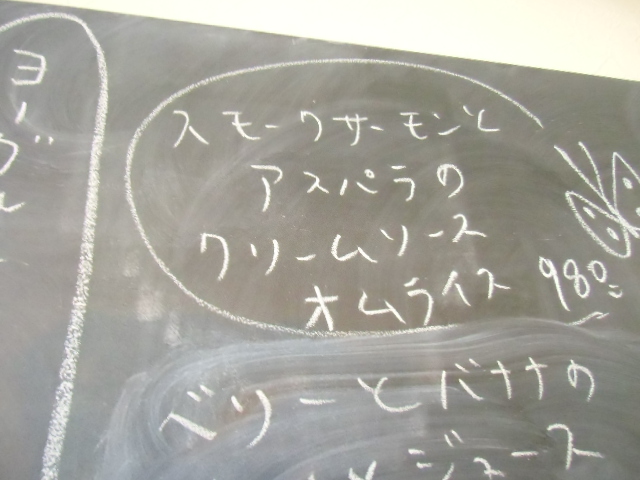 スモークサーモンと
アスパラの
クリームソース
オムライス 980
ベリーとバナナの
ジュース
ヨーグル